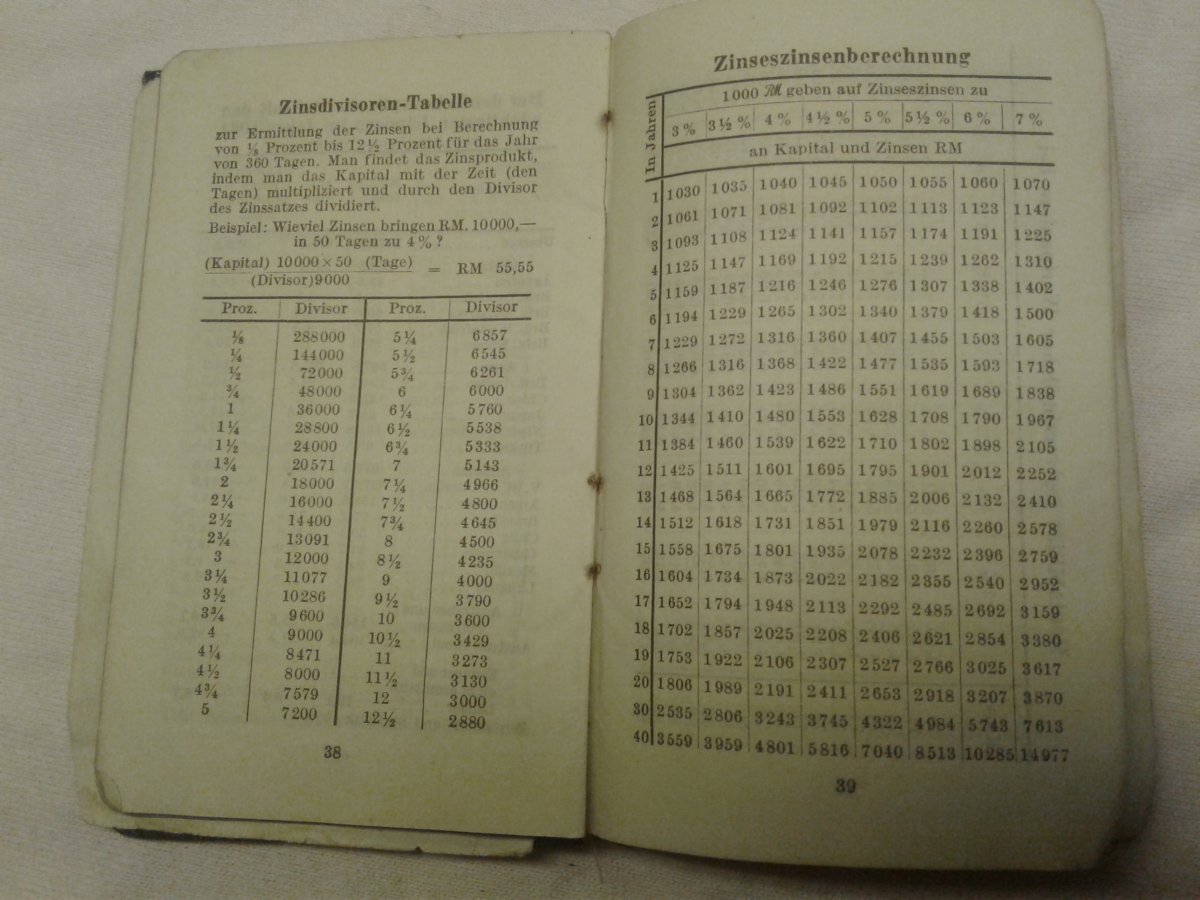 Zinsdivisoren-Tabelle
zur Ermittlung der Zinsen bei Berechnung
von ⅛ Prozent bis 12½ Prozent für das Jahr
von 360 Tagen. Man findet das Zinsprodukt,
indem man das Kapital mit der Zeit (den
Tagen) multipliziert und durch den Divisor
des Zinssatzes dividiert.
Beispiel: Wieviel Zinsen bringen RM. 10000,—
in 50 Tagen zu 4%?
(Kapital) 10000×50 (Tage)
(Divisor)9000
= RM 55,55
Proz. Divisor Proz. Divisor
⅛ 288000 5¼ 6857
¼ 144000 5½ 6545
½ 72000 5¾ 6261
¾ 48000 6 6000
1 36000 6¼ 5760
1¼ 28800 6½ 5538
1½ 24000 6¾ 5333
1¾ 20571 7 5143
2 18000 7¼ 4966
2¼ 16000 7½ 4800
2½ 14400 7¾ 4645
2¾ 13091 8 4500
3 12000 8½ 4235
3¼ 11077 9 4000
3½ 10286 9½ 3790
3¾ 9600 10 3600
4 9000 10½ 3429
4¼ 8471 11 3273
4½ 8000 11½ 3130
4¾ 7579 12 3000
5 7200 12½ 2880
38
Zinseszinsenberechnung
In Jahren
1000 ℛℳ geben auf Zinseszinsen zu
3% 3½% 4% 4½% 5% 5½% 6% 7%
an Kapital und Zinsen RM
1 1030 1035 1040 1045 1050 1055 1060 1070
2 1061 1071 1081 1092 1102 1113 1123 1147
3 1093 1108 1124 1141 1157 1174 1191 1225
4 1125 1147 1169 1192 1215 1239 1262 1310
5 1159 1187 1216 1246 1276 1307 1338 1402
6 1194 1229 1265 1302 1340 1379 1418 1500
7 1229 1272 1316 1360 1407 1455 1503 1605
8 1266 1316 1368 1422 1477 1535 1593 1718
9 1304 1362 1423 1486 1551 1619 1689 1838
10 1344 1410 1480 1553 1628 1708 1790 1967
11 1384 1460 1539 1622 1710 1802 1898 2105
12 1425 1511 1601 1695 1795 1901 2012 2252
13 1468 1564 1665 1772 1885 2006 2132 2410
14 1512 1618 1731 1851 1979 2116 2260 2578
15 1558 1675 1801 1935 2078 2232 2396 2759
16 1604 1734 1873 2022 2182 2355 2540 2952
17 1652 1794 1948 2113 2292 2485 2692 3159
18 1702 1857 2025 2208 2406 2621 2854 3380
19 1753 1922 2106 2307 2527 2766 3025 3617
20 1806 1989 2191 2411 2653 2918 3207 3870
30 2535 2806 3243 3745 4322 4984 5743 7613
40 3559 3959 4801 5816 7040 8513 10285 14977
39